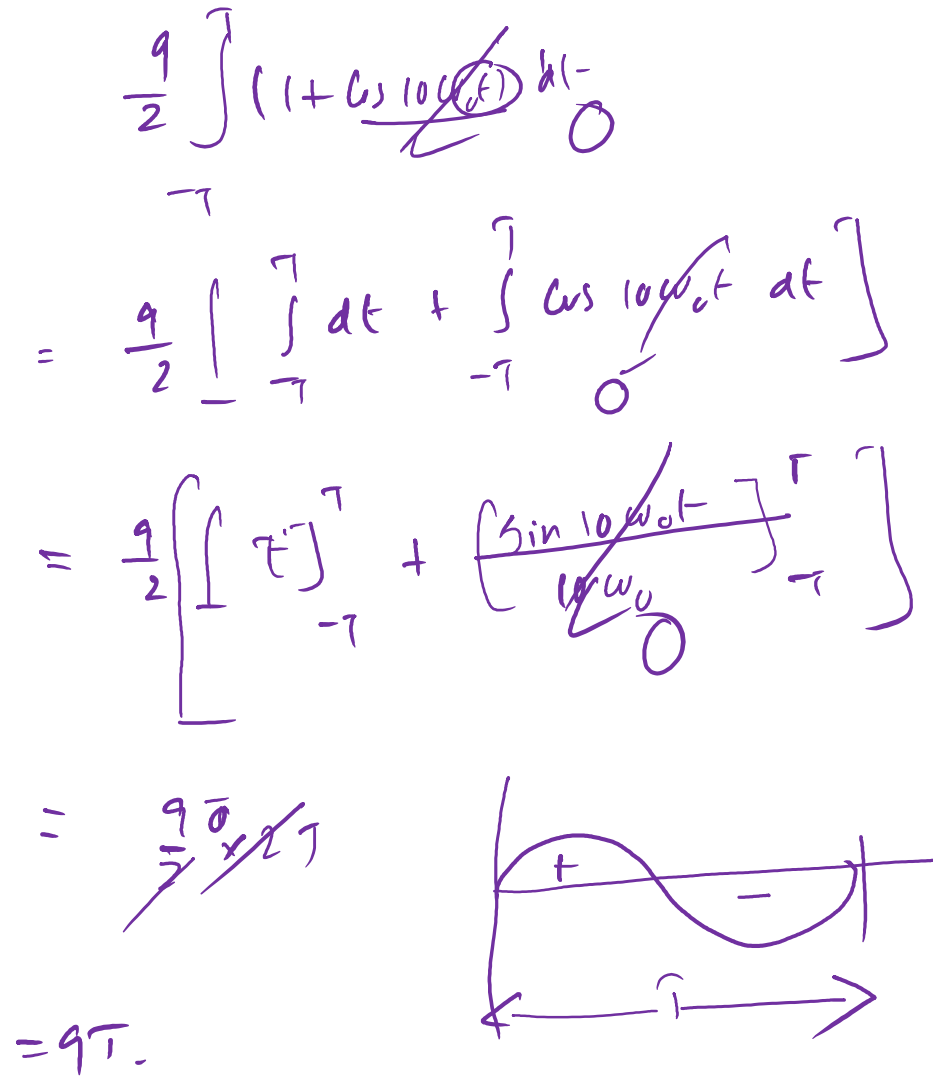 9/2 ∫_{-T}^{T} (1 + Cos 10ω₀t) dt 0
= 9/2 [ ∫_{-T}^{T} dt + ∫_{-T}^{T} Cos 10ω₀t dt ] 0
= 9/2 [ [t]_{-T}^{T} + [Sin 10ω₀t / 10ω₀]_{-T}^{T} ] 0
= 9/2 × 2T
+ −
T
= 9T.